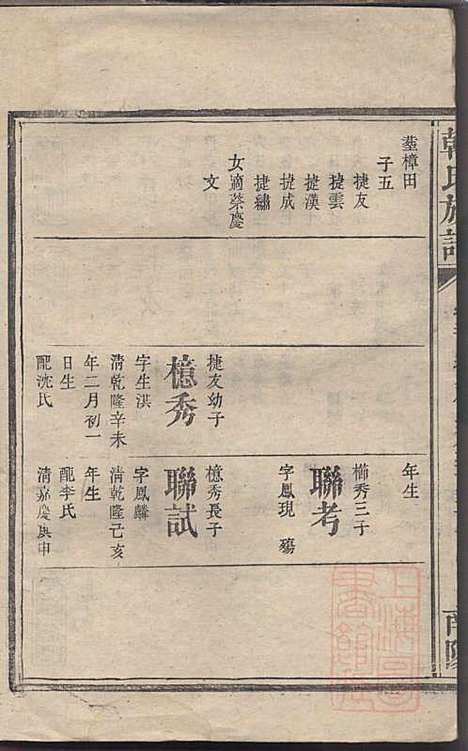 韓氏族譜
南陽
塟樟田
子五
捷友
捷雲
捷漢
捷成
捷繡
女適榮慶
文
捷友幼子
檍秀
字生淇
清乾隆辛未
年二月初一
日生
配沈氏
年生
櫛秀三子
聯考
字鳳現 殤
檍秀長子
聯試
字鳳麟
清乾隆己亥
年生
配李氏
清嘉慶庚申